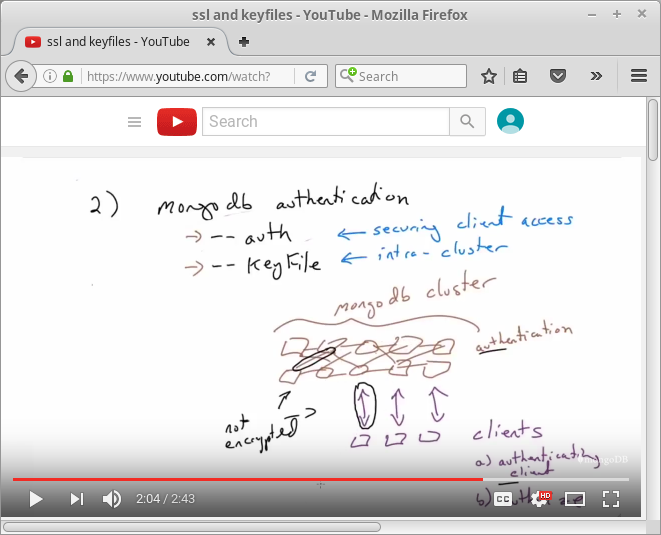 ssl and keyfiles - YouTube - Mozilla Firefox
ssl and keyfiles - YouTube
https://www.youtube.com/watch?
Search
Search
2) mongodb authentication
→ -- auth ← securing client access
→ -- KeyFile ← intra-cluster
mongodb cluster
authentication
not
encrypted
clients
a) authenticating
client
mongoDB
b)
2:04 / 2:43
CC
HD